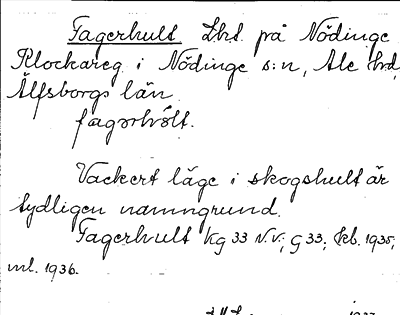 Fagerhult Lht. på Nödinge
Klockareg. i Nödinge s:n, Ale hrd,
Älfsborgs län.
fagərhölt.
Vackert läge i skogshult är
tydligen namngrund.
Fagerhult Kg 33 N.V.; G 33; Kb. 1935;
ml. 1936.